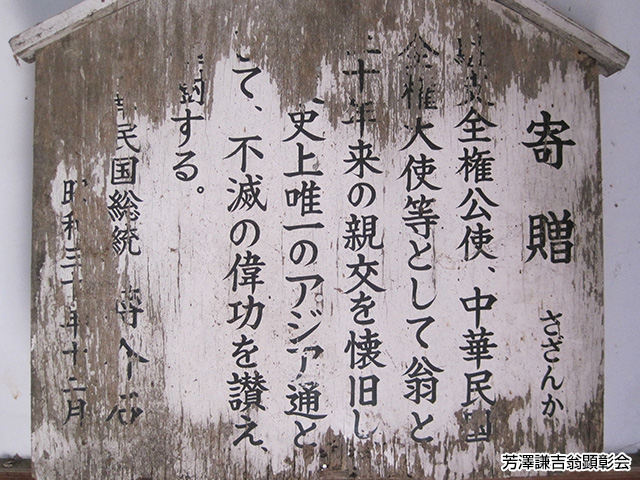 寄贈 さざんか
全権公使、中華民国
全権大使等として翁と
十年来の親交を懐旧し
、史上唯一のアジア通と
て、不滅の偉功を讃え、
する。
民国総統 蒋介石
昭和三十年十二月
芳澤謙吉翁顕彰会